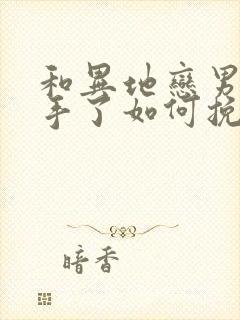 和異地戀男
手了如何挽
暗香